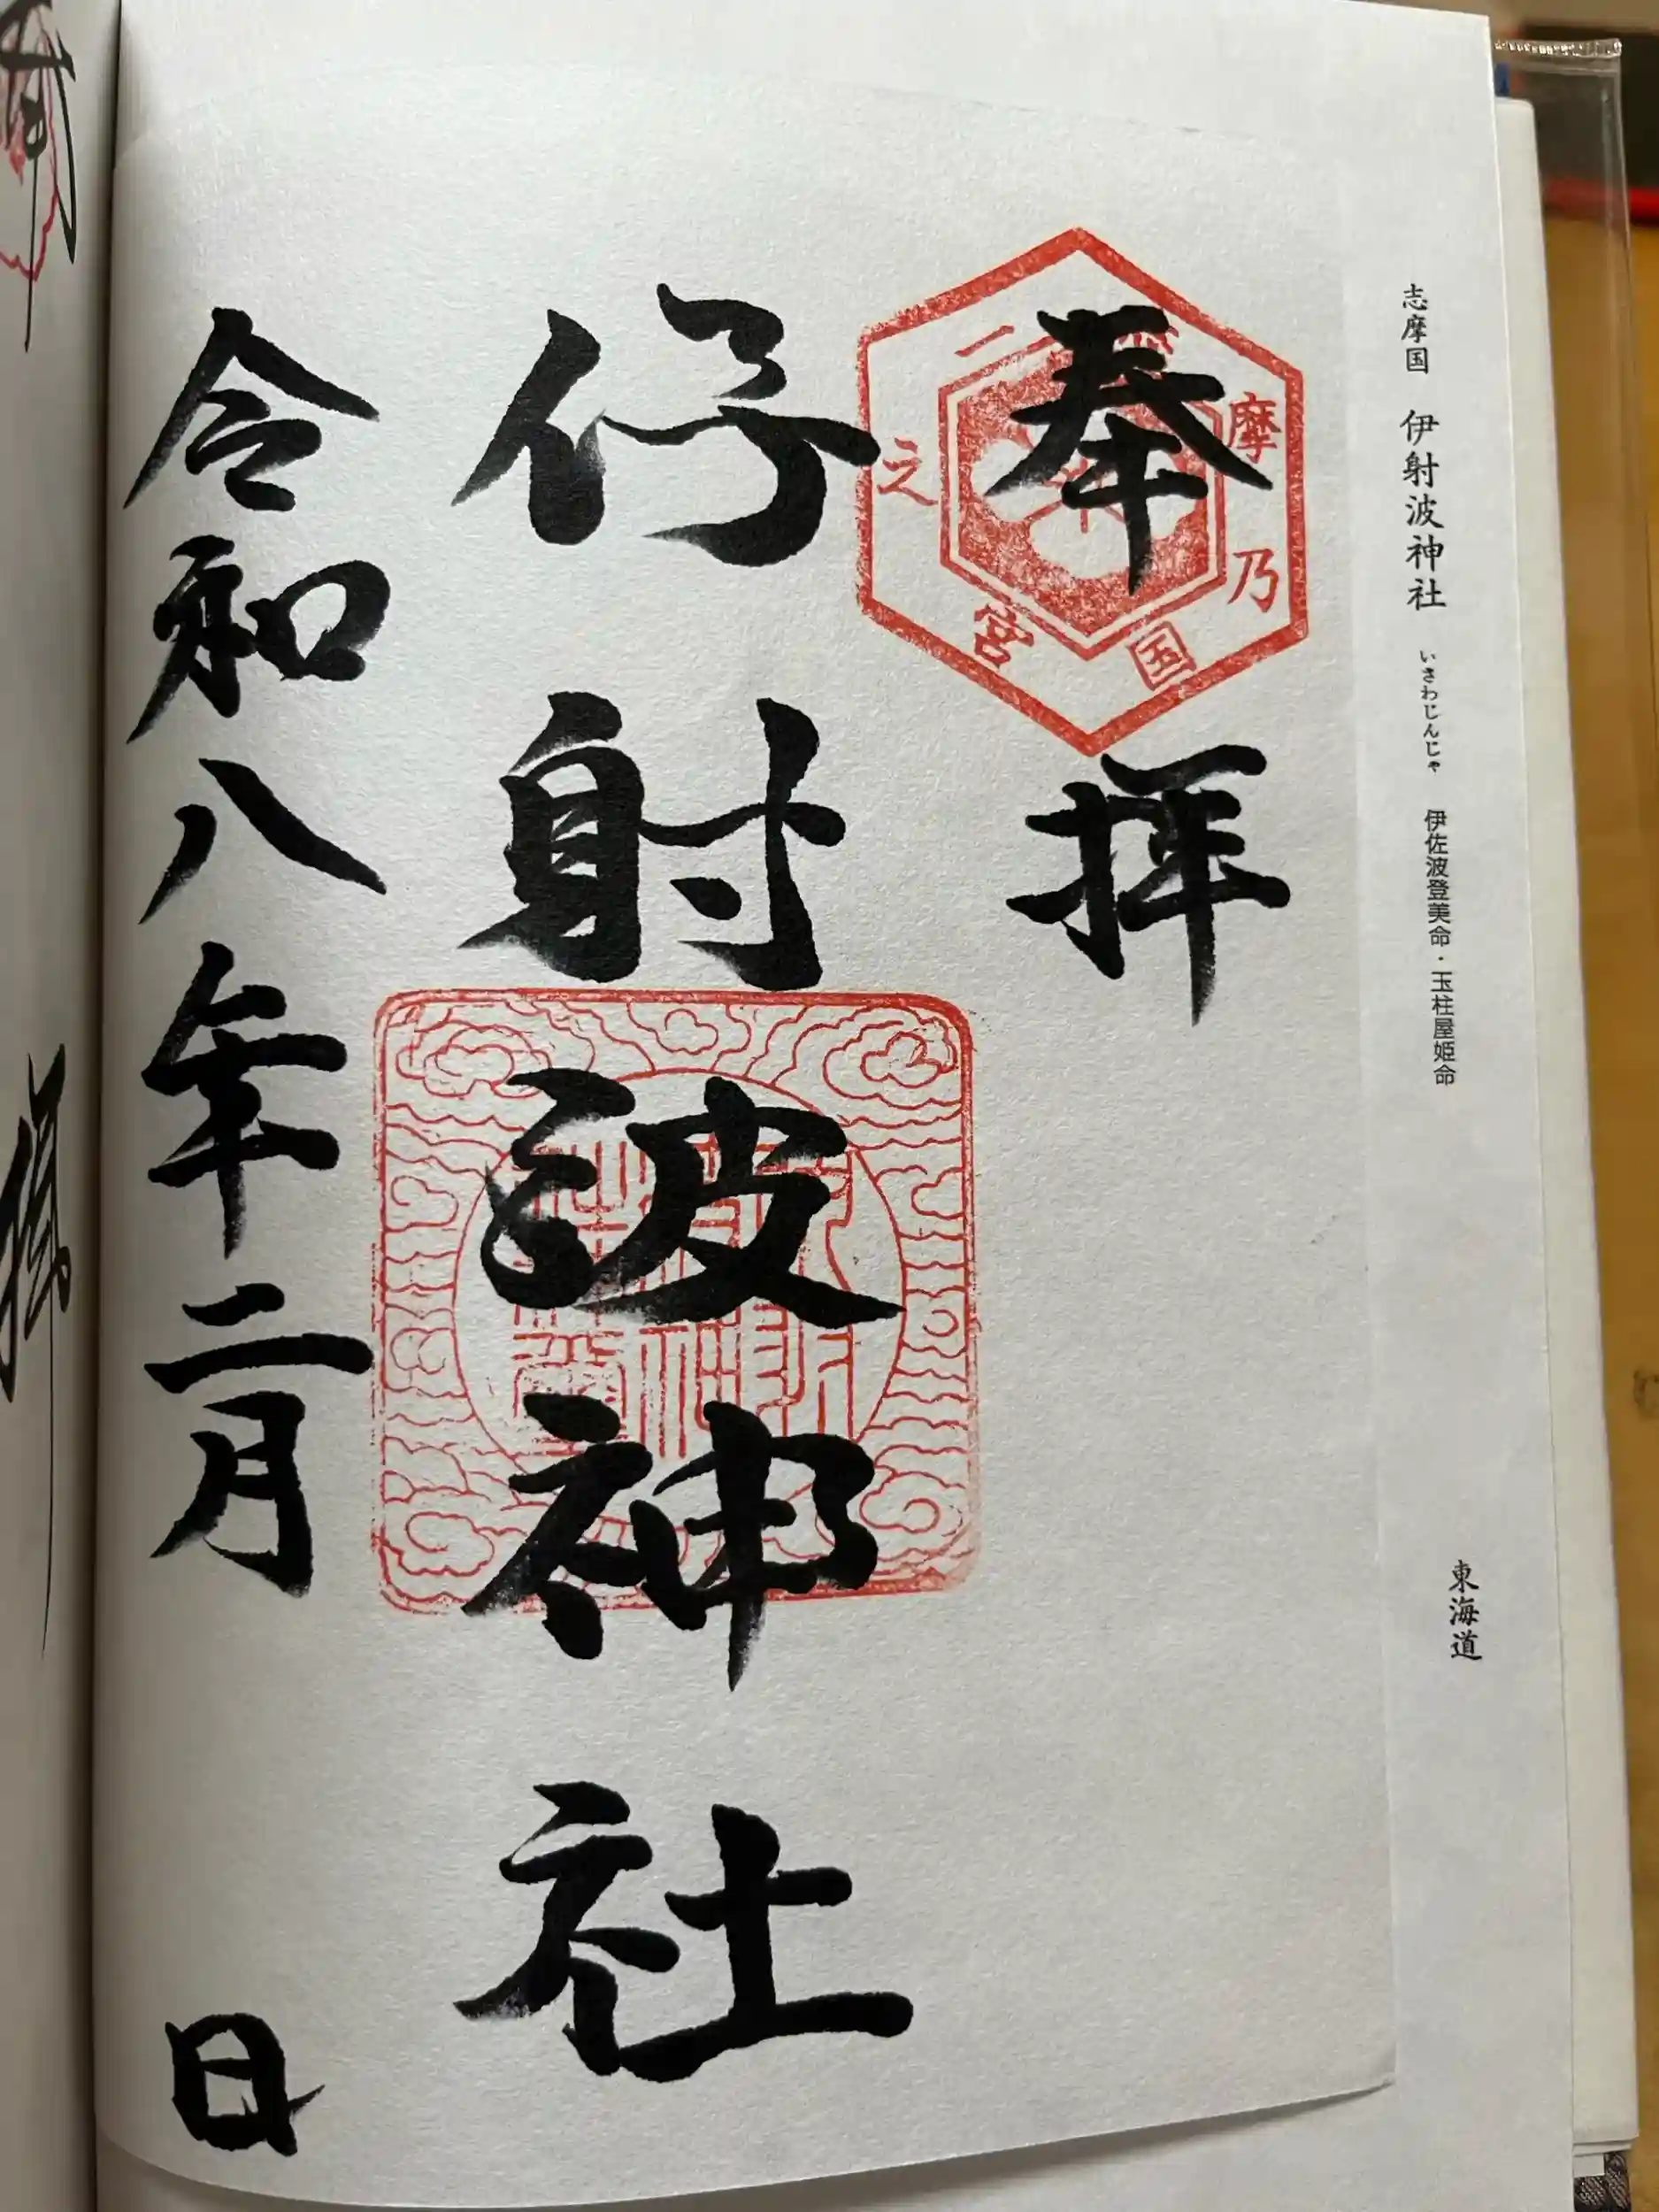 志摩国 伊射波神社 いさわじんじゃ 伊佐波登美命・玉柱屋姫命 東海道
奉拝
摩乃国
一之宮
伊射波神社
令和八年二月 日